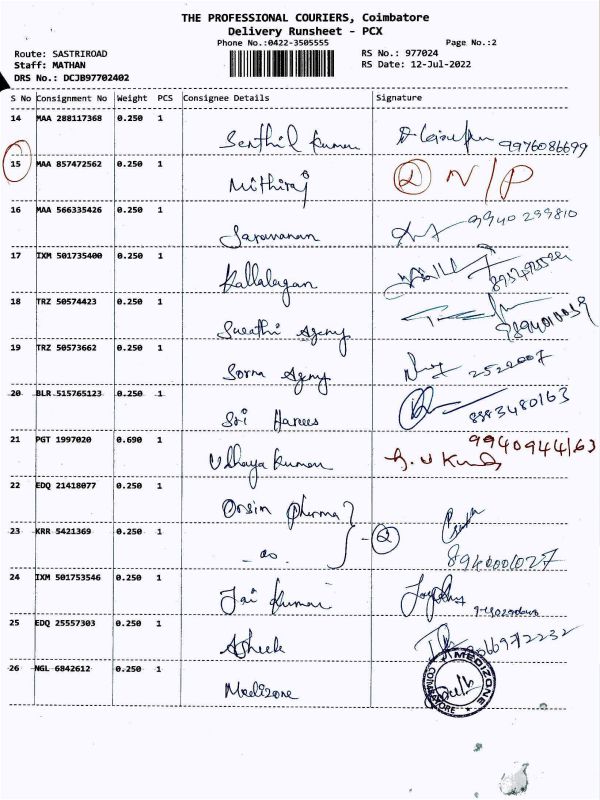 THE PROFESSIONAL COURIERS, Coimbatore
Delivery Runsheet - PCX
Phone No.:0422-3505555 Page No.:2
Route: SASTRIROAD RS No.: 977024
Staff: MATHAN RS Date: 12-Jul-2022
DRS No.: DCJB97702402
S No Consignment No Weight PCS Consignee Details Signature
14 MAA 288117368 0.250 1 Senthil Kumar 9976086699
15 MAA 857472562 0.250 1 Mithiraj 2 N/P
16 MAA 566335426 0.250 1 Saravanan 9940 299810
17 IXM 501735400 0.250 1 Kallalagan
18 TRZ 50574423 0.250 1 Swathi Agency
19 TRZ 50573662 0.250 1 Sorna Agency 2522007
20 BLR 515765123 0.250 1 Sri Harees 8883480163
21 PGT 1997020 0.690 1 Udhaya Kumar 9940944163
22 EDQ 21418077 0.250 1 Orsin Pharma
23 KRR 5421369 0.250 1 - do - 2
24 IXM 501753546 0.250 1 Jai Kumar
25 EDQ 25557303 0.250 1 Asheek 9066972232
26 NGL 6842612 0.250 1 Medizone
MEDIZONE
COIMBATORE